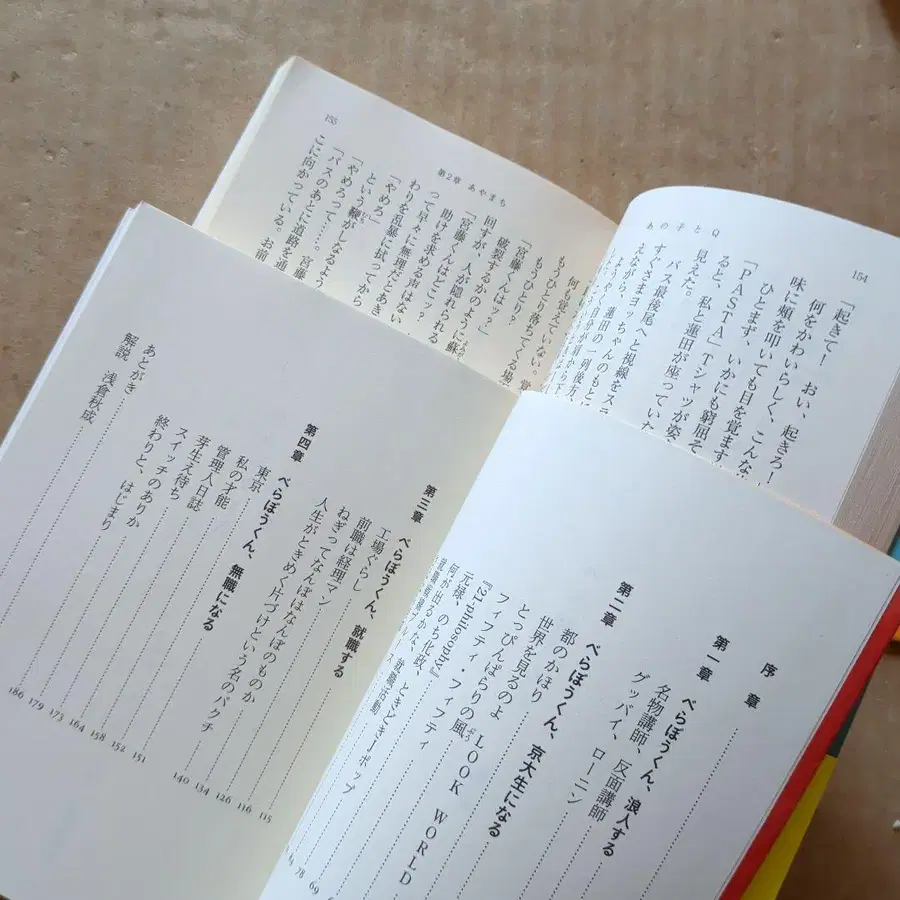 154
あの子とQ
「起きて！　おい、起きろ！
何をかわいらしく、こんな
味に頰を叩いても目を覚ます
ひとまず、いかにも窮屈そ
「PASTA」Tシャツが姿
ると、私と蓮田が座っていた
見えた。
バス最後尾へと視線をスラ
すんさまヨッちゃんのもとに
155
第2章 あやまも
何も覚えていない。覚
もうひとり落ちてくる場
もうひとり？
「宮藤くんはッ？」
破裂するかのように蘇
回すが、人が隠れられる
「宮藤くんはどこッ？
助けを求める声はない
って早々に無理だとあき
わりを乱暴に拭ってから
「やめろ」
という鞭がしなるよう
「やめろって……。宮藤
「バスのあとに道路を通
こに向かっている。お前
序章
第一章　べらぼうくん、浪人する
名物講師、反面講師
グッバイ、ローニン
第二章　べらぼうくん、京大生になる
都のかほり
世界を見るのよ　LOOK WORLD
とっぴんぱらりの風
フィフティ・フィフティ
『21-philosophy』
元禄、のち化政、ときどきーポップ
何が出るかな、就職活動
69
78
第三章　べらぼうくん、就職する
115
工場ぐらし
116
前職は経理マン
126
ねぎってなんぼはなんぼのものか
134
人生がときめく片づけという名のパクチ
140
第四章　べらぼうくん、無職になる
151
東京
152
私の才能
158
管理人日誌
164
芽生え待ち
173
スイッチのありか
179
終わりと、はじまり
186
あとがき
解説　浅倉秋成